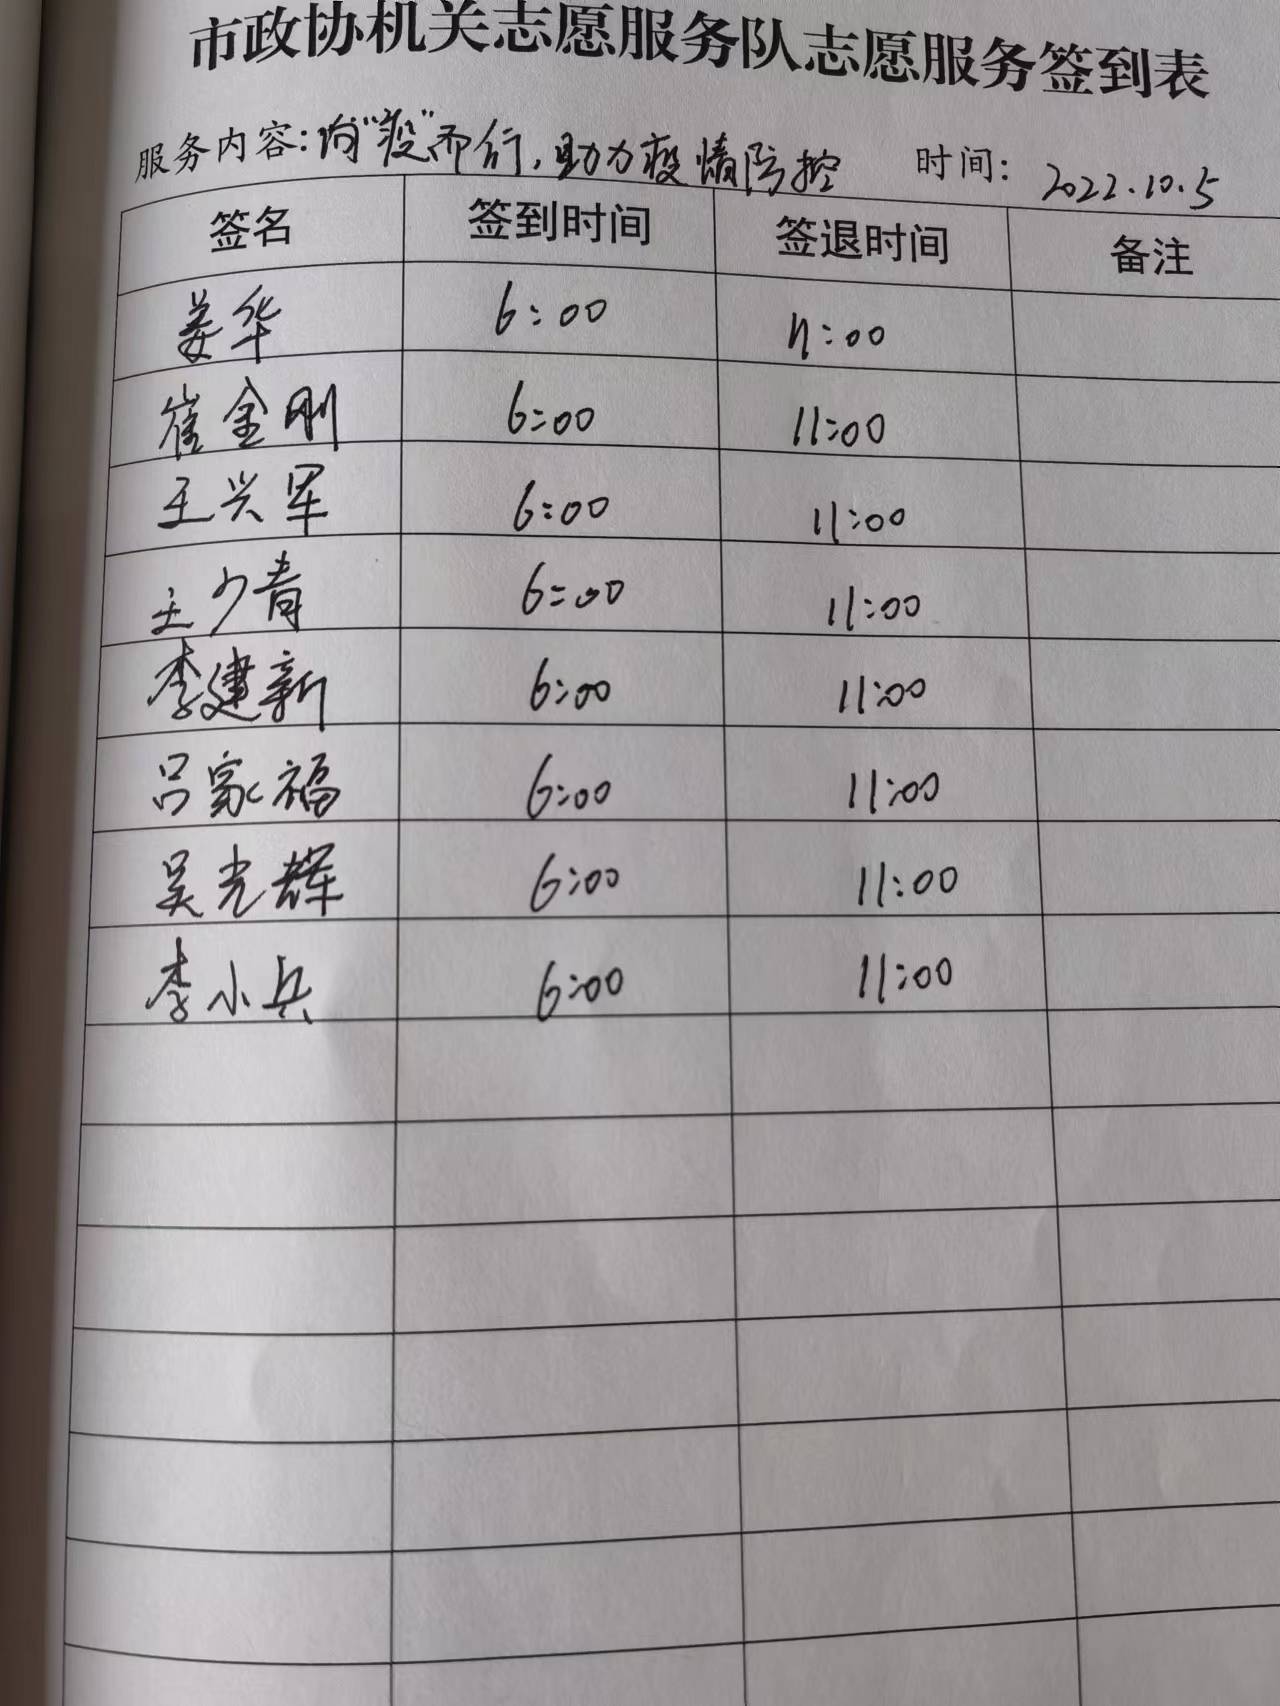 市政协机关志愿服务队志愿服务签到表
服务内容：向“疫”而行，助力疫情防控 时间：2022.10.5
签名 签到时间 签退时间 备注
姜华 6:00 11:00
崔金刚 6:00 11:00
王兴军 6:00 11:00
王少青 6:00 11:00
李建新 6:00 11:00
吕家福 6:00 11:00
吴光辉 6:00 11:00
李小兵 6:00 11:00